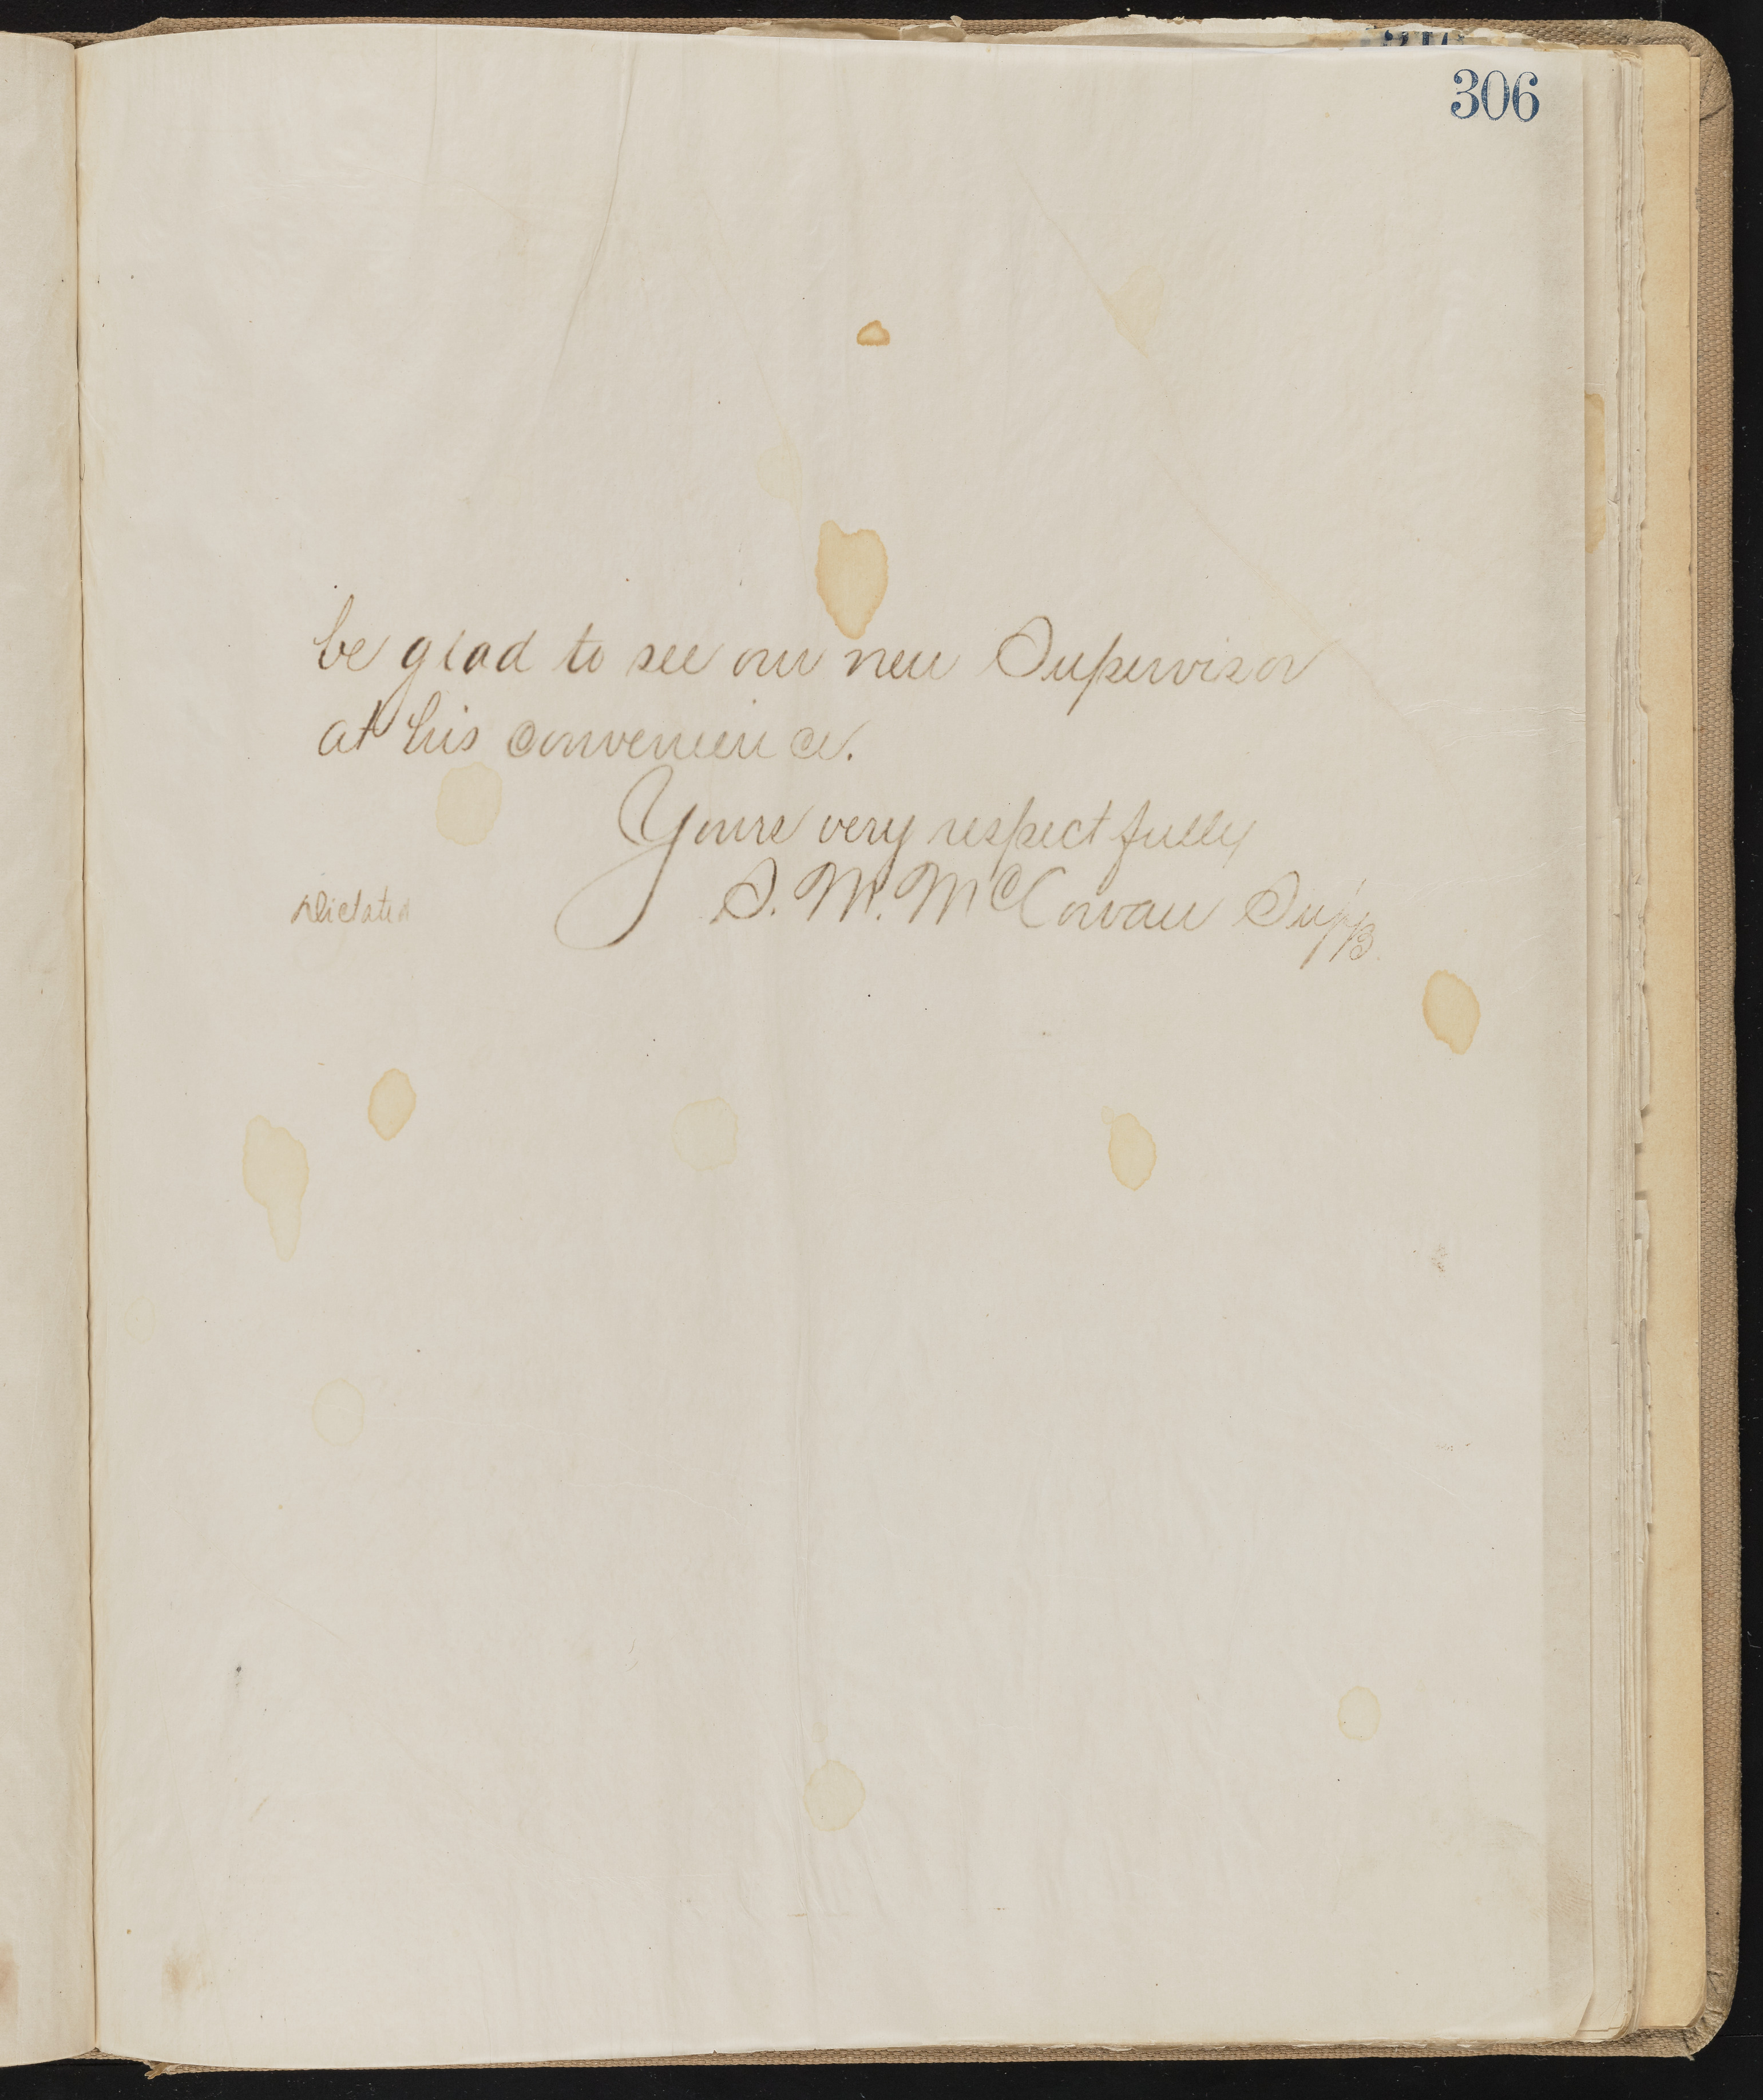 306
be glad to see our new Supervisor
at his convenience.
Yours very respectfully
S. M. McCowan Supt
Dictated
B.